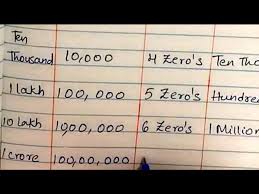 Ten
Thousand 10,000 4 Zero's Ten Tho
1 lakh 100,000 5 Zero's Hundre
10 lakh 1,000,000 6 Zero's 1 Million
1 crore 100,00,000